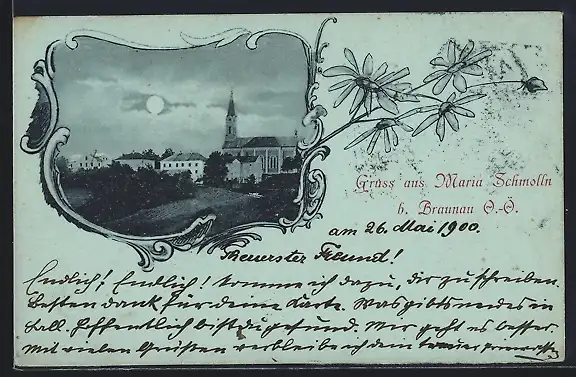 Gruss aus Maria Schmolln
b. Braunau O.-Ö.
am 26. Mai 1900.
Teuerster Freund!
Endlich! Endlich! komme ich dazu, dir zu schreiben.
Besten dank für deine Karte. Was gibts neues in
Hall. Hoffentlich bist du gesund. Mir geht es besser.
Mit vielen Grüßen verbleibe ich dein